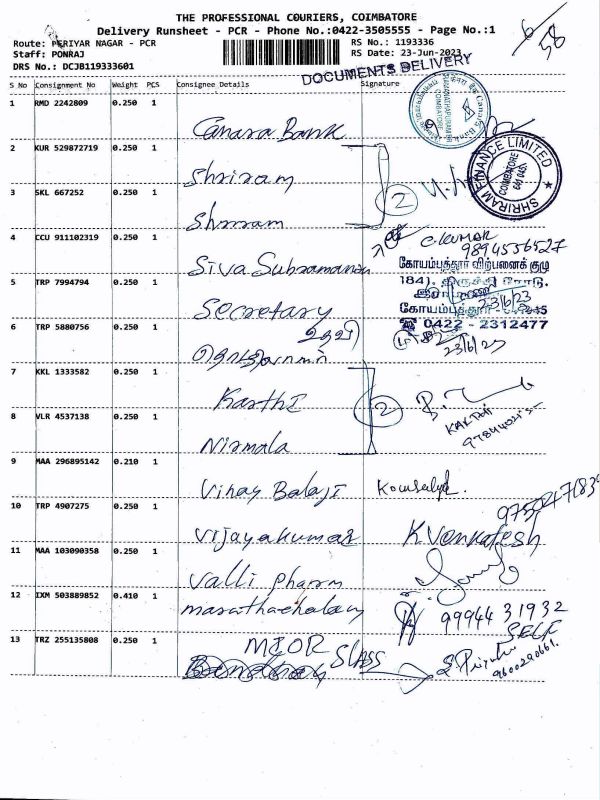 THE PROFESSIONAL COURIERS, COIMBATORE
Delivery Runsheet - PCR - Phone No.:0422-3505555 - Page No.:1
Route: PERIYAR NAGAR - PCR
RS No.: 1193336
6/58
Staff: PONRAJ
RS Date: 23-Jun-2023
DRS No.: DCJB119333601
DOCUMENTS DELIVERY
S No Consignment No Weight PCS Consignee Details Signature
1 RMD 2242809 0.250 1 Canara Bank
Canara Bank
COIMBATORE
2 KUR 529872719 0.250 1 Shriram
SHRIRAM FINANCE LIMITED
COIMBATORE
641 045.
3 SKL 667252 0.250 1 Shriram
2
4 CCU 911102319 0.250 1 Siva Subramanian
C.KUMAR
9894556527
கோயம்புத்தூர் விற்பனைக் குழு
184), திருச்சி ரோடு,
5 TRP 7994794 0.250 1 Secretary
23/6/23
கோயம்புத்தூர் - 641045
☎ 0422 - 2312477
6 TRP 5880756 0.250 1 உதவி
23/6/23
7 KKL 1333582 0.250 1 Karthi
2
KARTHI
8 VLR 4537138 0.250 1 Nirmala
9 MAA 296895142 0.210 1 Vinay Balaji Kowsalya.
10 TRP 4907275 0.250 1 Vijayakumar K Venkatesh
11 MAA 103090358 0.250 1 Valli Pharm
12 IXM 503889852 0.410 1 marathachalam
99944 31932
SELF
13 TRZ 255135808 0.250 1 MEOR SLASS
S Priya
9600290661.